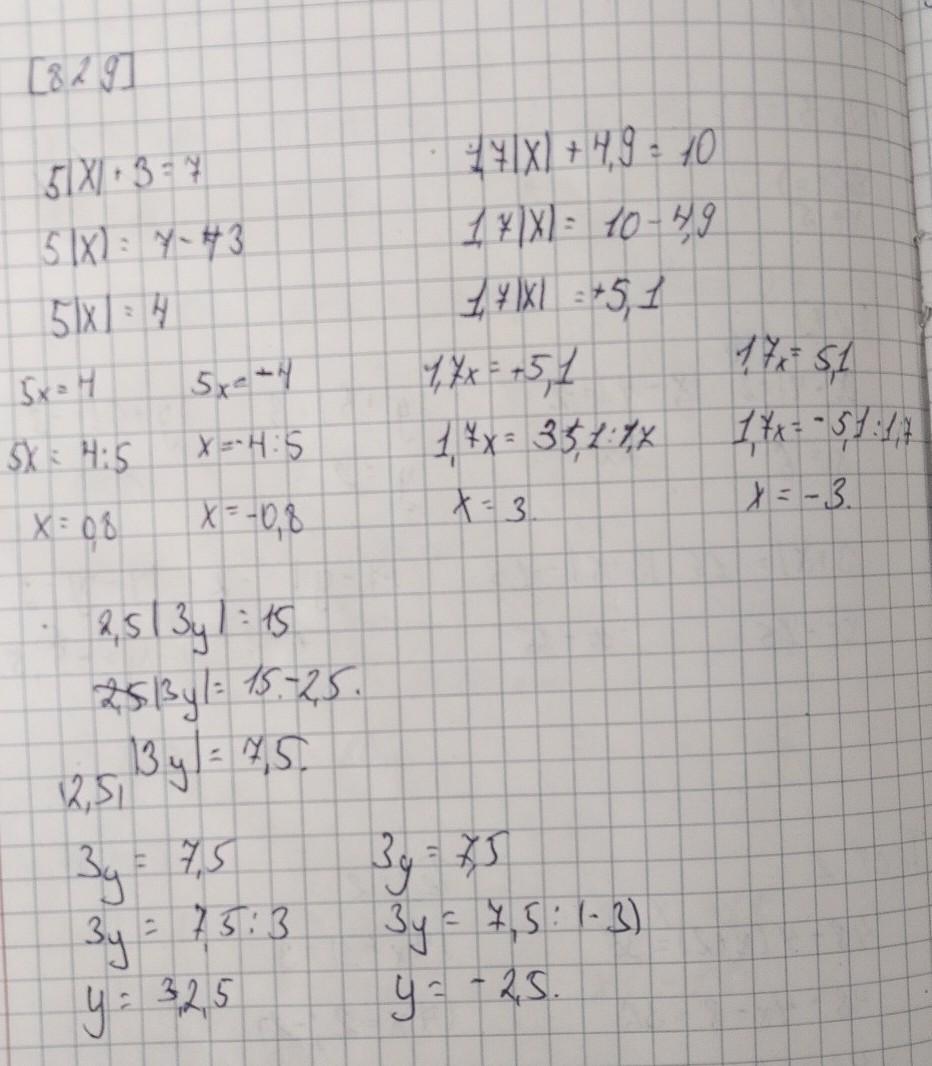 [829]
5|x| + 3 = 7
5|x| = 7 - 3
5|x| = 4
5x = 4    5x = -4
5x = 4:5    x = -4:5
x = 0,8    x = -0,8
1,7|x| + 4,9 = 10
1,7|x| = 10 - 4,9
1,7|x| = +5,1
1,7x = +5,1    1,7x = 5,1
1,7x = 5,1:1,7    1,7x = -5,1:1,7
x = 3.    x = -3.
2,5|3y| = 15
2,5|3y| = 15.-2,5.
|3y| = 7,5.
|2,5|
3y = 7,5    3y = 7,5
3y = 7,5:3    3y = 7,5:(-3)
y = 2,5    y = -2,5.